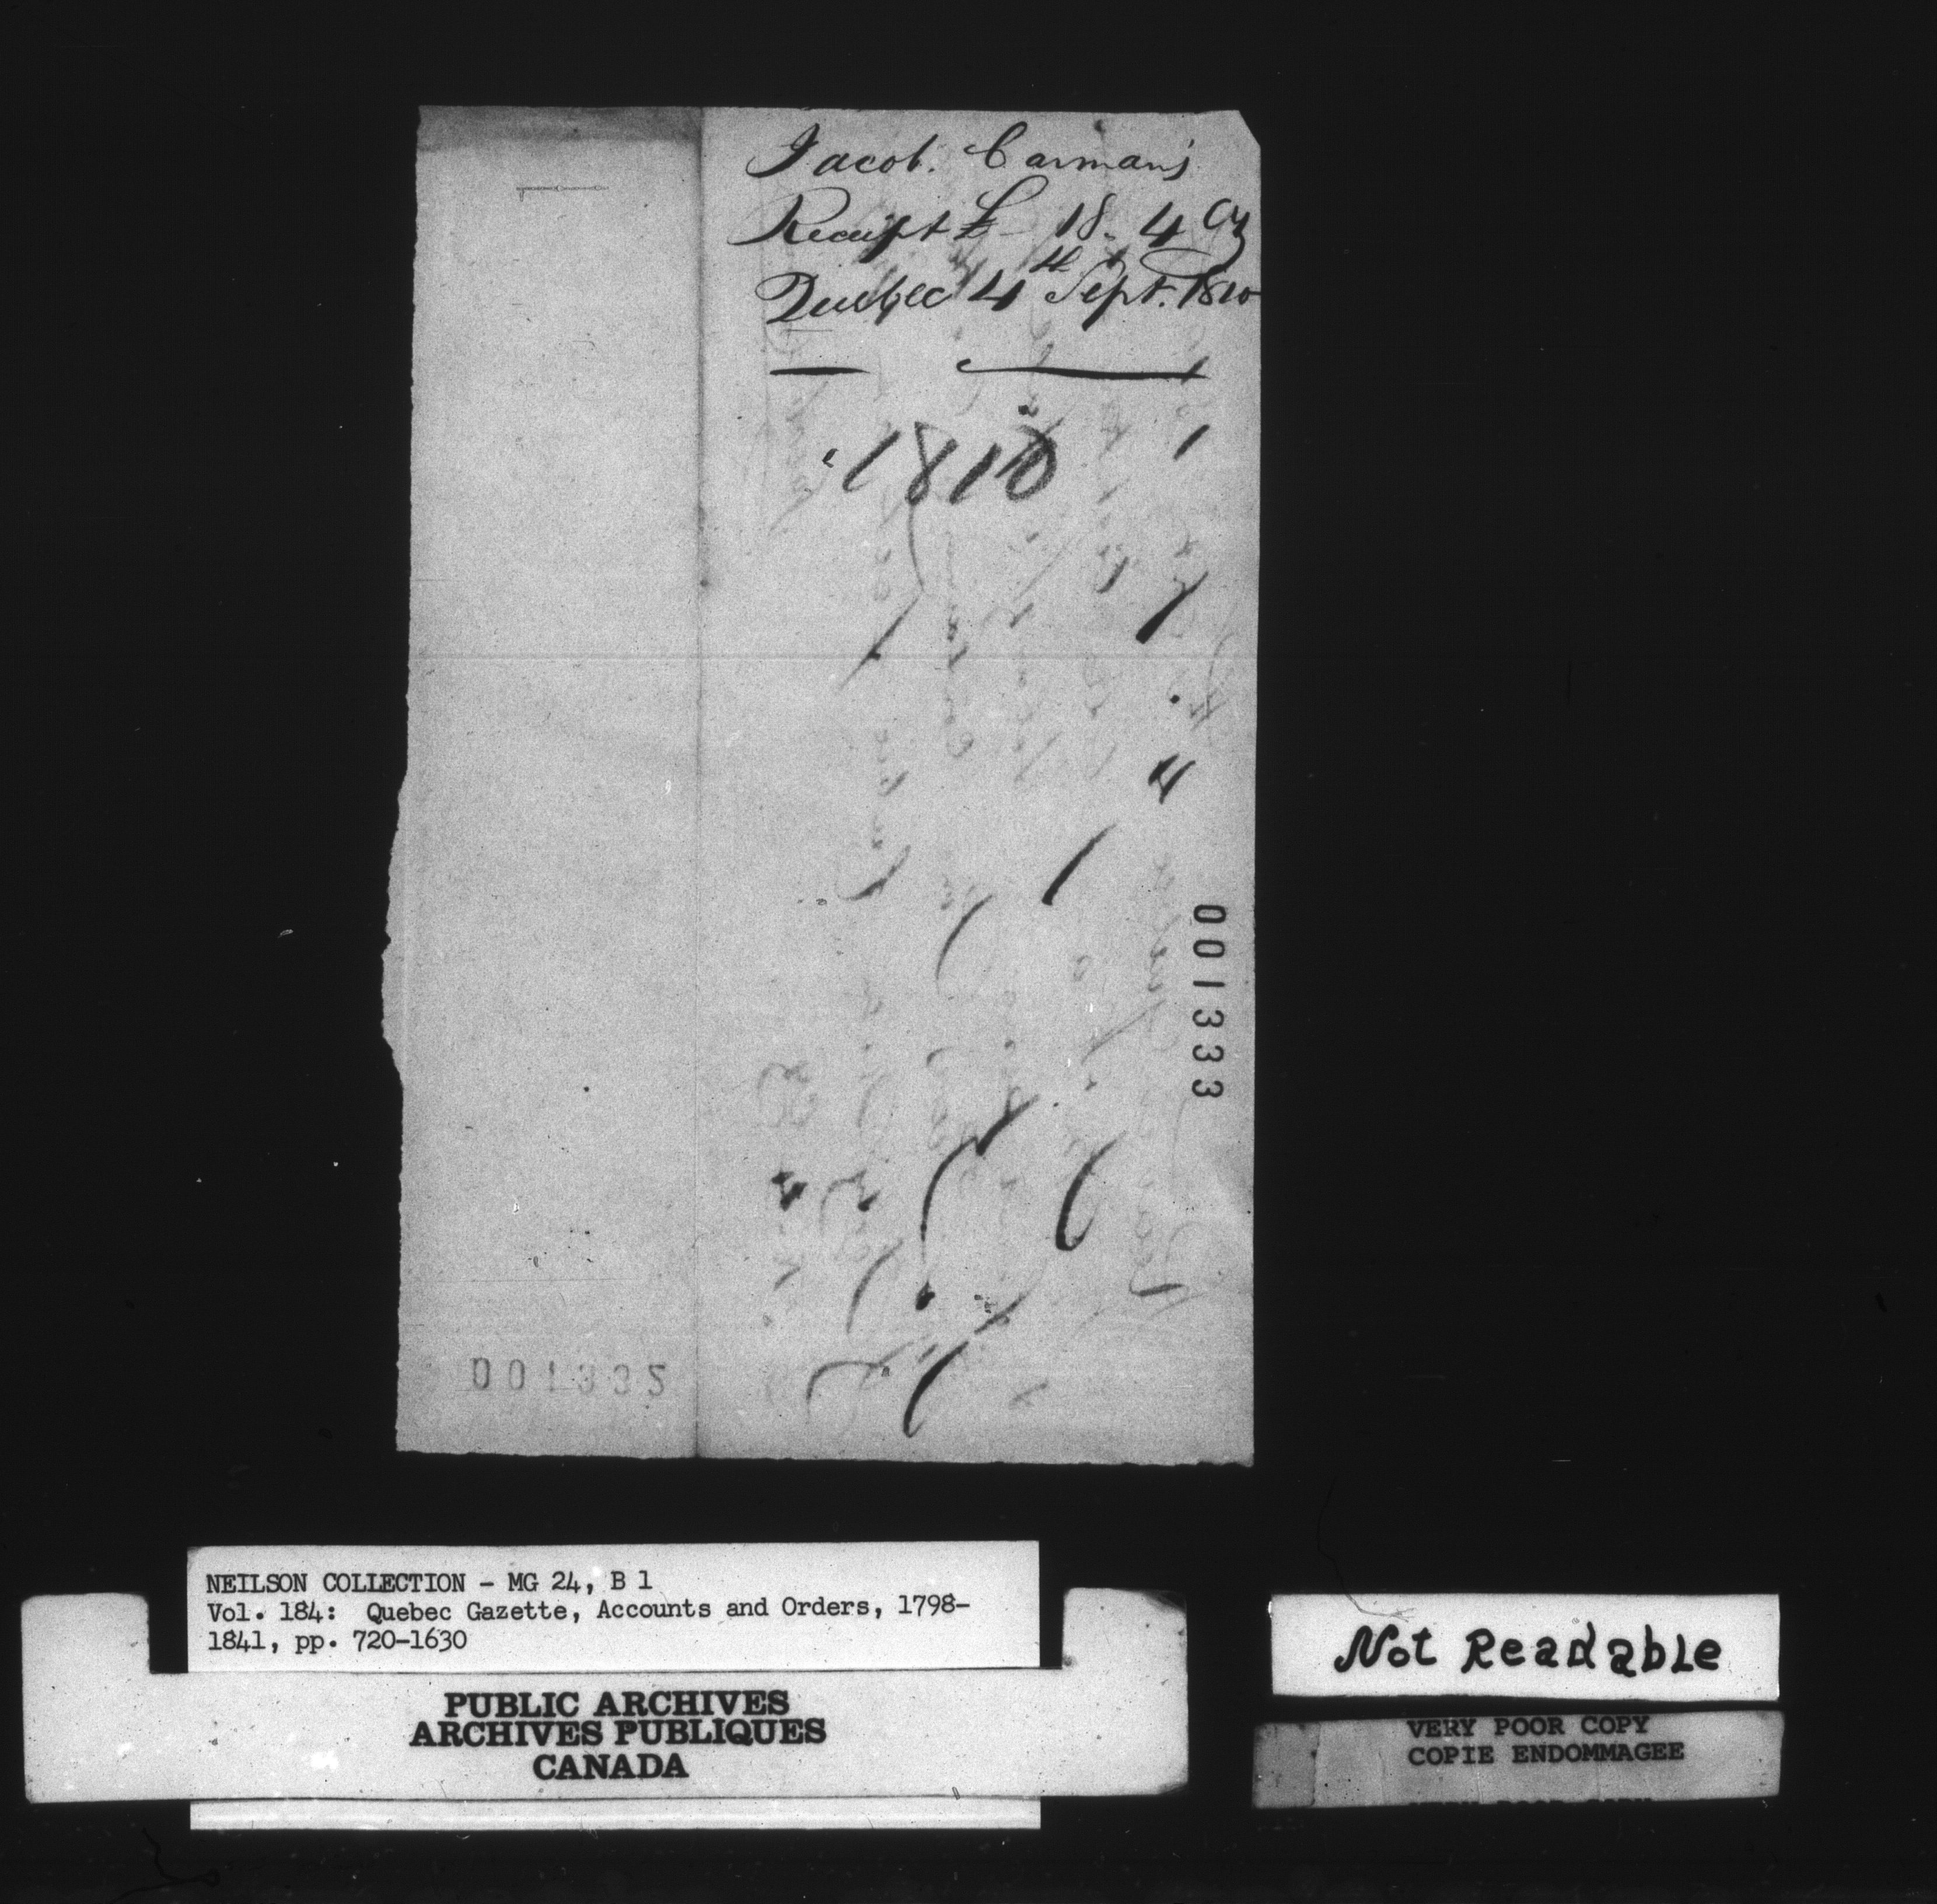 Jacob. Carman's
Receipt £ - 18. 4 Cy
Quebec 4th Sept. 1810
1810
001333
001332
NEILSON COLLECTION - MG 24, B 1
Vol. 184: Quebec Gazette, Accounts and Orders, 1798-
1841, pp. 720-1630
PUBLIC ARCHIVES
ARCHIVES PUBLIQUES
CANADA
Not Readable
VERY POOR COPY
COPIE ENDOMMAGEE